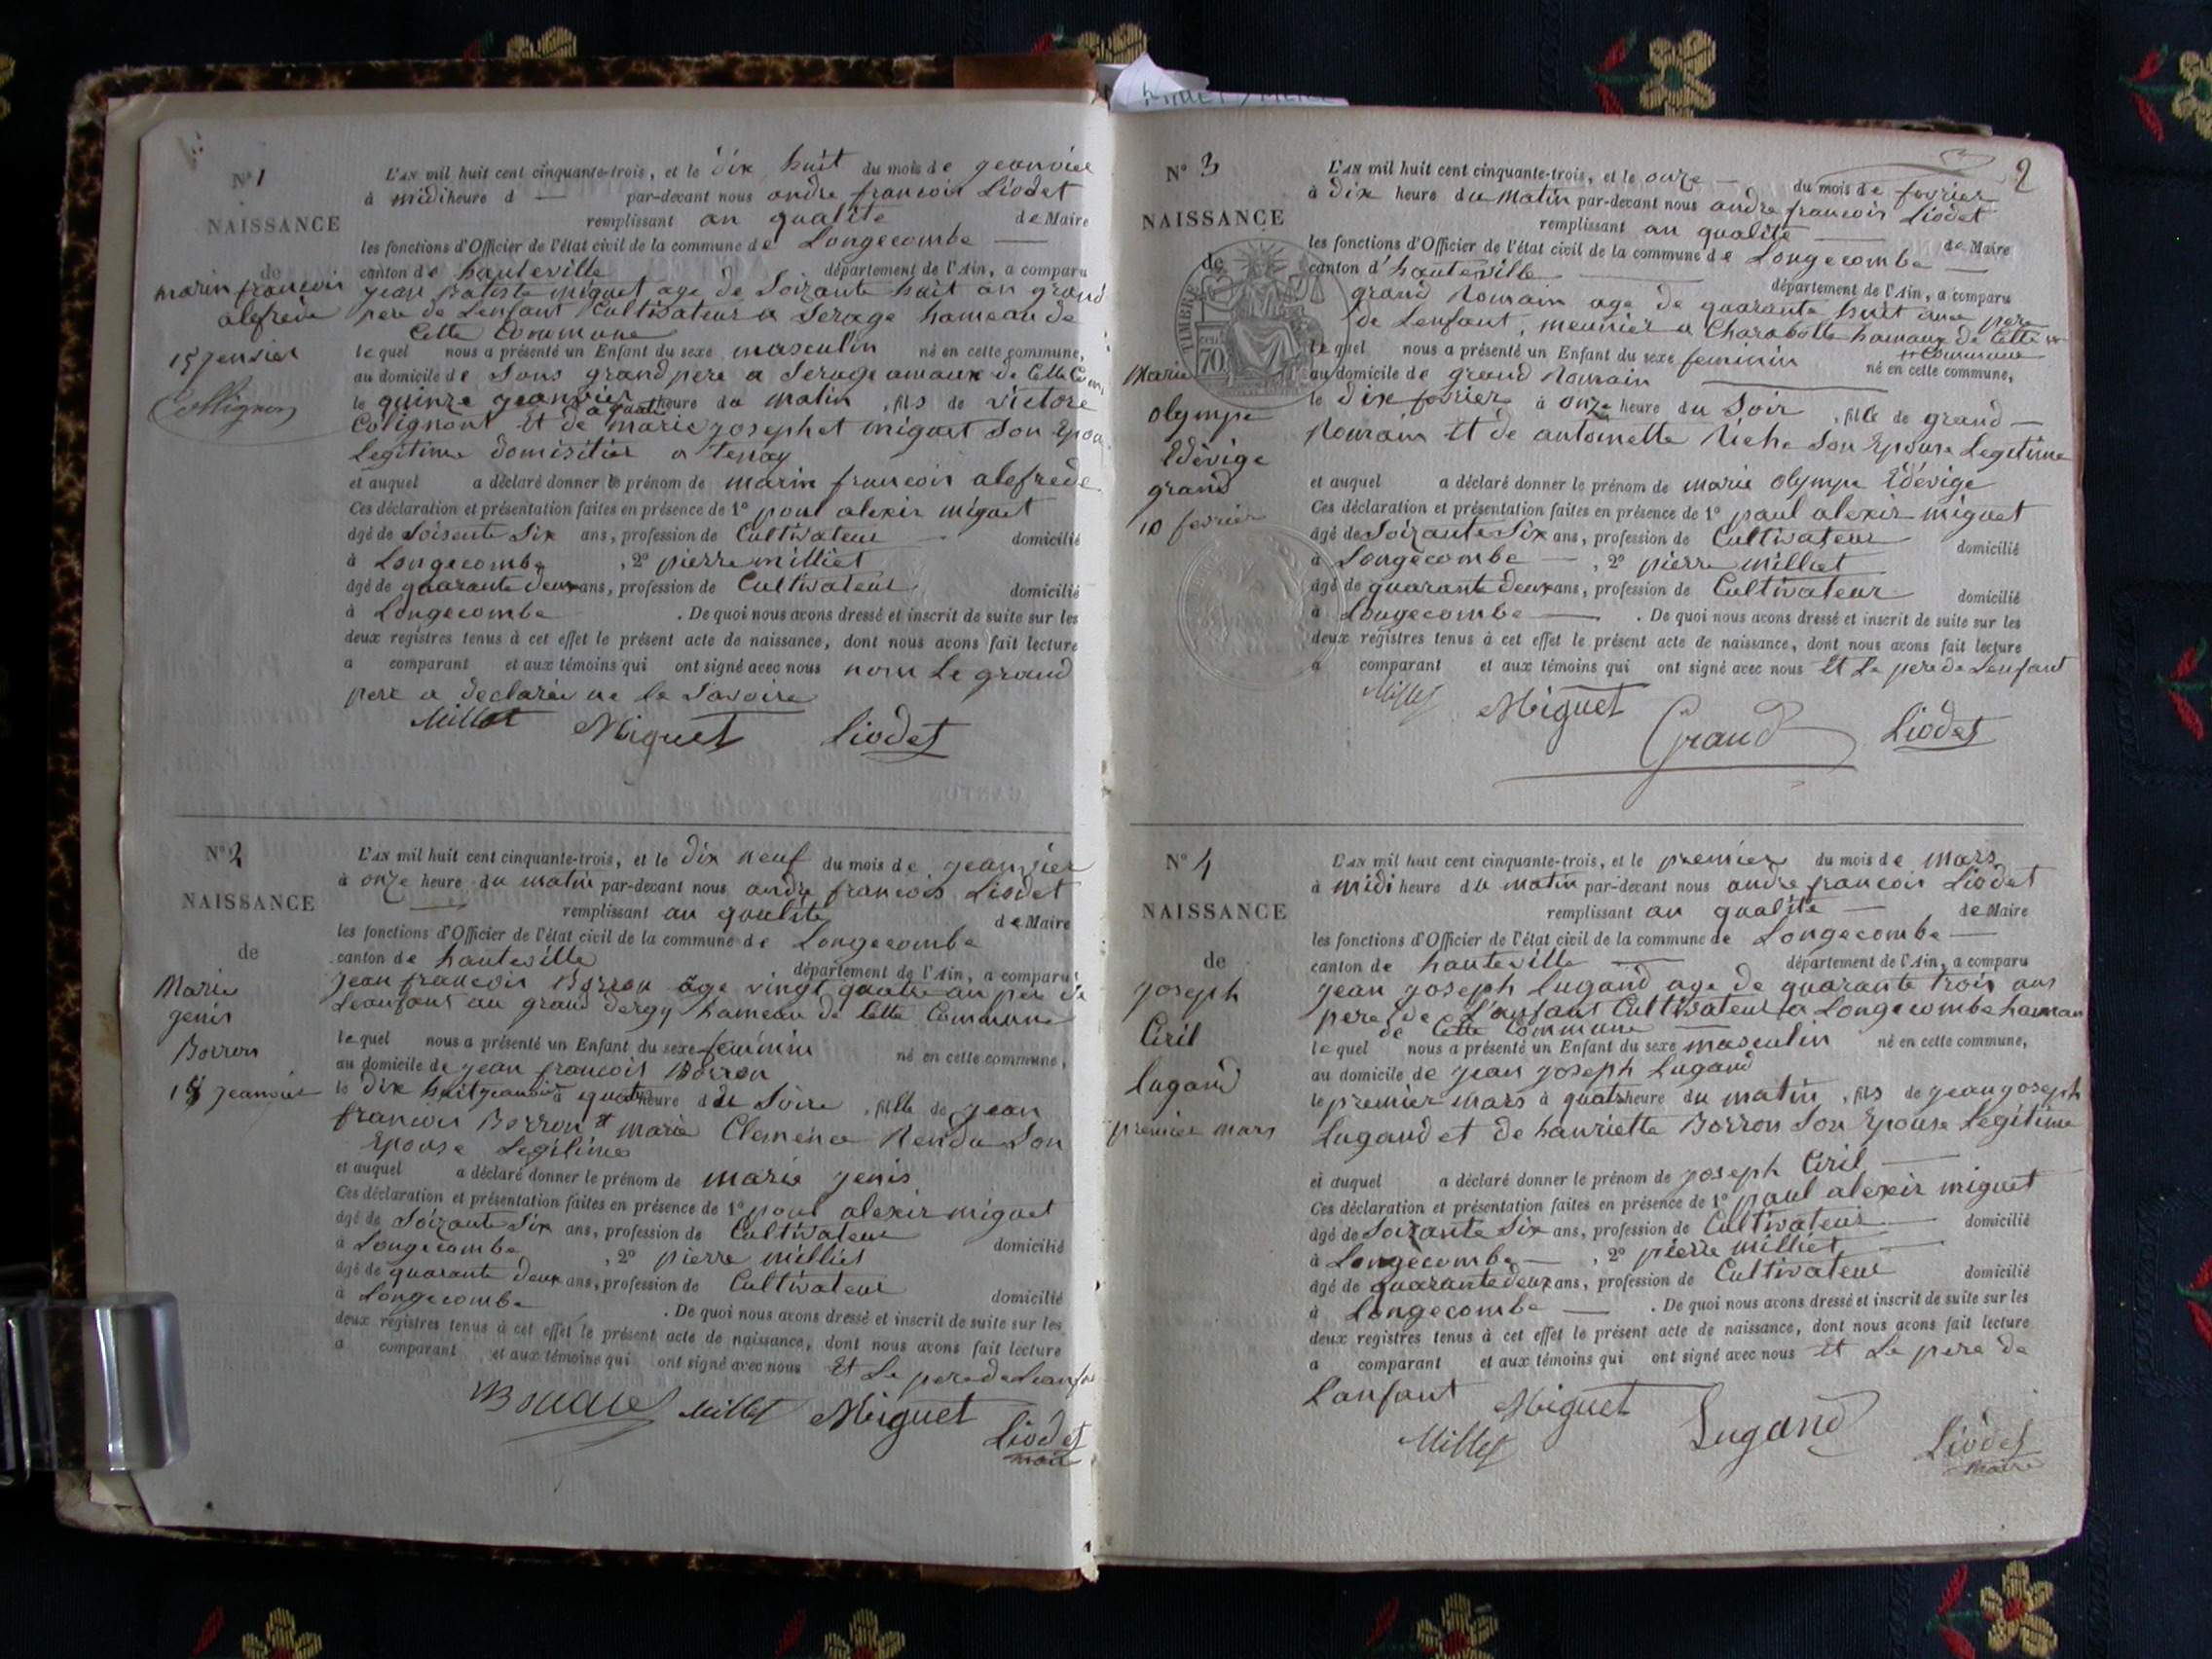 N° 1
NAISSANCE
de
marin francois
alefrède
15 jenvier
Collignon
L'AN mil huit cent cinquante-trois, et le dix huit du mois de geanvier
à midi heure d — par-devant nous andre francois Liodet
remplissant an qualite de Maire
les fonctions d'Officier de l'état civil de la commune de Longecombe —
canton de hauteville département de l'Ain, a comparu
jean batiste miguet age de Soizante huit an grand
pere de Lenfant Cultivateur a Serage hameau de
Cette Commune
lequel nous a présenté un Enfant du sexe masculin né en cette commune,
au domicile de Sons grand pere a Serage amaux de Cette Com
le quinze geanvier à quatre heure du matin , fils de Victore
Colignont Et de marie josephet miguet Son Epou
Legitime domisitier a tenay
et auquel a déclaré donner le prénom de marin francois alefrede
Ces déclaration et présentation faites en présence de 1° poul alexis miguet
âgé de Soisente Six ans, profession de Cultivateur domicilié
à Longecombe , 2° pierre milliet
âgé de quarante deux ans, profession de Cultivateur domicilié
à Longecombe . De quoi nous avons dressé et inscrit de suite sur les
deux registres tenus à cet effet le présent acte de naissance, dont nous avons fait lecture
a comparant et aux témoins qui ont signé avec nous nom Le grand
pere a declarée ne le Savoire
Milliet Miguet Liodet
N° 2
NAISSANCE
de
Marie
jenis
Borron
18 jeanvier
L'AN mil huit cent cinquante-trois, et le dix neuf du mois de jeanvier
à onze heure du matin par-devant nous andre francois Liodet
— remplissant an qualite de Maire
les fonctions d'Officier de l'état civil de la commune de Longecombe
canton de hauteville département de l'Ain, a comparu
jean francois Borron age vingt quatre an per de
Leanfant au grand dergy hameau de Cette Commune
lequel nous a présenté un Enfant du sexe feminin né en cette commune,
au domicile de jean francois Borron
le dix huit jeanvier à quatre heure du Soire , fille de jean
francois Borron et marie Clemence Rendu Son
Epouse Legitime
et auquel a déclaré donner le prénom de marie jenis
Ces déclaration et présentation faites en présence de 1° poul alexis miguet
âgé de Soizante Six ans, profession de Cultivateur
à Longecombe , 2° pierre milliet domicilié
âgé de quarante deux ans, profession de Cultivateur
à Longecombe domicilié
. De quoi nous avons dressé et inscrit de suite sur les
deux registres tenus à cet effet le présent acte de naissance, dont nous avons fait lecture
a comparant et aux témoins qui ont signé avec nous Et Le pere de Leanfan
Milliet Miguet Liodet
maire
2
N° 3
NAISSANCE
de
TIMBRE
70
Marie
Olympe
Edévige
grand
10 fevrier
L'AN mil huit cent cinquante-trois, et le onze — du mois de fevrier
à dix heure du matin par-devant nous andre francois Liodet
remplissant an qualite — de Maire
les fonctions d'Officier de l'état civil de la commune de Longecombe —
canton d'hauteville — département de l'Ain, a comparu
grand Romain age de quarante huit ans pere
de Lenfant, meunier a Charabotte hamaux de Cette
Commune
lequel nous a présenté un Enfant du sexe feminin né en cette commune,
au domicile de grand Romain —
le dix fevrier à onze heure du Soir , fille de grand —
Romain Et de antoinette Riche Son Epouse Legitime
et auquel a déclaré donner le prénom de marie Olympe Edévige
Ces déclaration et présentation faites en présence de 1° paul alexis miguet
âgé de Soizante Six ans, profession de Cultivateur domicilié
à Longecombe — , 2° pierre milliet
âgé de quarante deux ans, profession de Cultivateur domicilié
à Longecombe — . De quoi nous avons dressé et inscrit de suite sur les
deux registres tenus à cet effet le présent acte de naissance, dont nous avons fait lecture
a comparant et aux témoins qui ont signé avec nous Et Le pere de Lenfant
Milliet Miguet Grand Liodet
N° 4
NAISSANCE
de
joseph
Ciril
Lugand
premier mars
L'AN mil huit cent cinquante-trois, et le premier du mois de mars
à midi heure du matin par-devant nous andre francois Liodet
remplissant an qualite — de Maire
les fonctions d'Officier de l'état civil de la commune de Longecombe —
canton de hauteville — département de l'Ain, a comparu
jean joseph Lugand age de quarante trois ans
pere de L'anfant Cultivateur a Longecombe hamau
de Cette Commune —
lequel nous a présenté un Enfant du sexe masculin né en cette commune,
au domicile de jean joseph Lugand
le premier mars à quatre heure du matin , fils de jean joseph
Lugand et de hanriette Borron Son Epouse Legitime
et auquel a déclaré donner le prénom de joseph Ciril —
Ces déclaration et présentation faites en présence de 1° paul alexis miguet
âgé de Soizante Six ans, profession de Cultivateur — domicilié
à Longecombe — , 2° pierre milliet —
âgé de quarante deux ans, profession de Cultivateur domicilié
à Longecombe — . De quoi nous avons dressé et inscrit de suite sur les
deux registres tenus à cet effet le présent acte de naissance, dont nous avons fait lecture
a comparant et aux témoins qui ont signé avec nous Et Le pere de
Lanfant Miguet Lugand
Milliet Liodet
maire